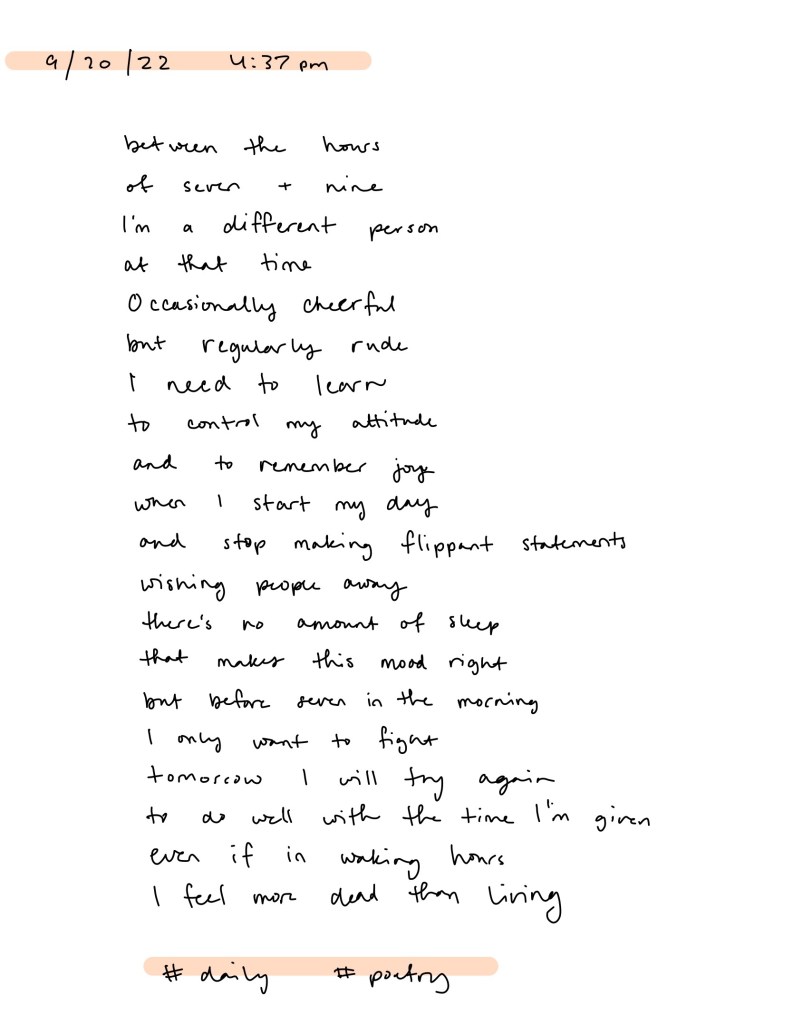 9/20/22 4:37 pm
between the hours
of seven + nine
I'm a different person
at that time
Occasionally cheerful
but regularly rude
I need to learn
to control my attitude
and to remember joy
when I start my day
and stop making flippant statements
wishing people away
there's no amount of sleep
that makes this mood right
but before seven in the morning
I only want to fight
tomorrow I will try again
to do well with the time I'm given
even if in waking hours
I feel more dead than living
# daily # poetry